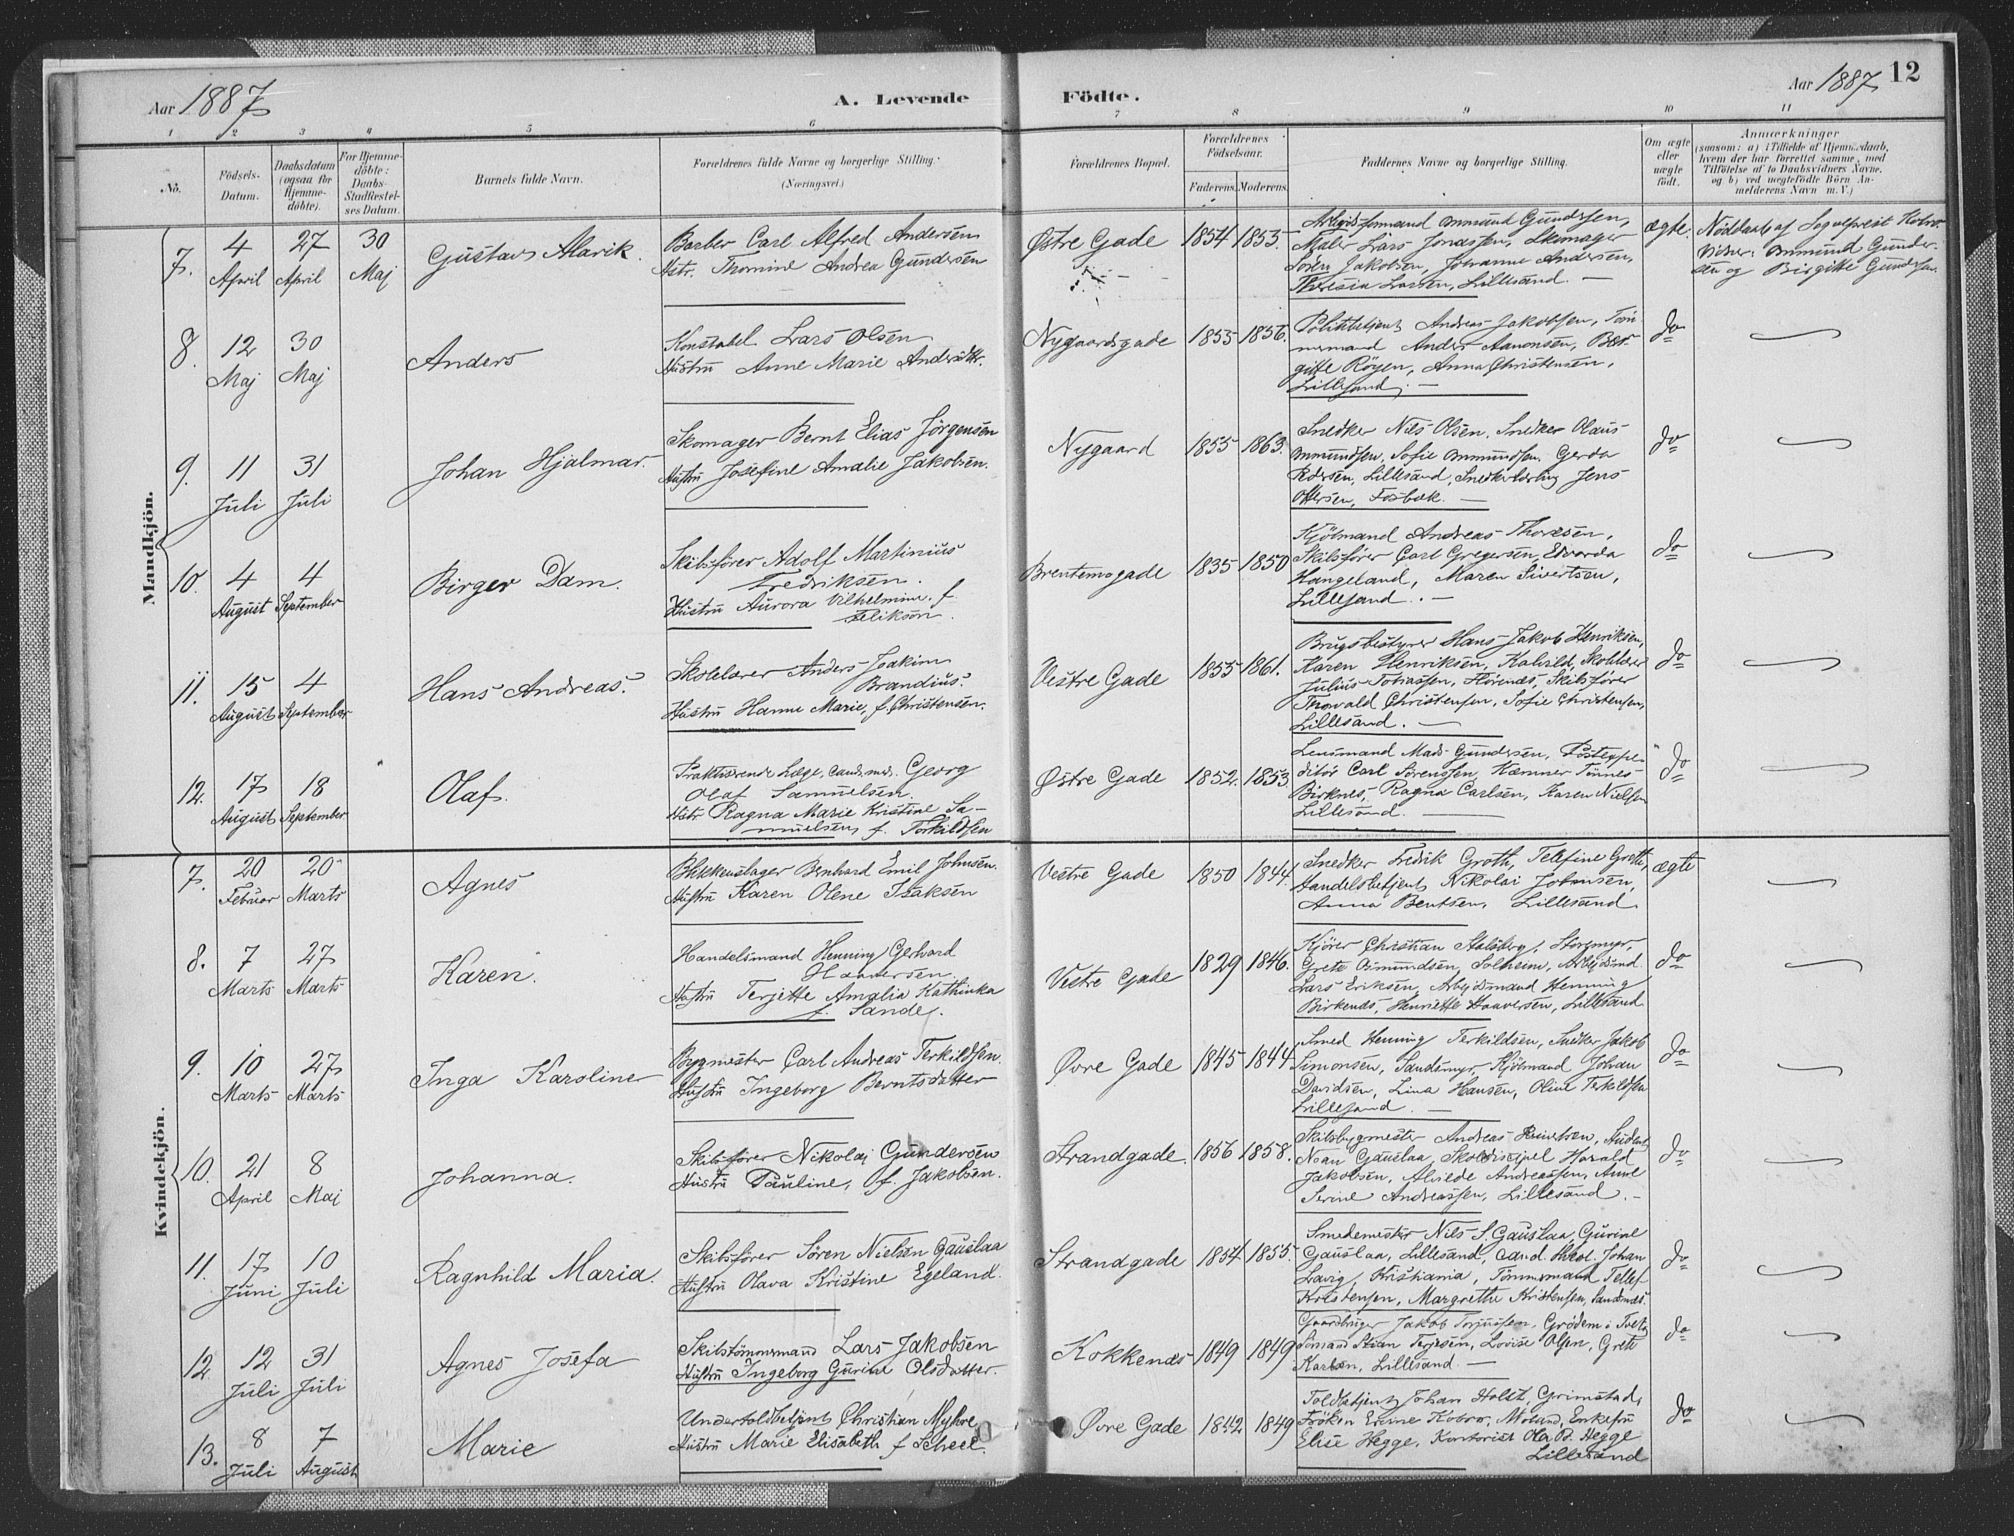 Aar 1887
A. Levende
Födte.
Aar 1887
12
1 2 3 4 5 6 7 8 9 10 11
No.
Födsels-Datum.
Daabsdatum (ogsaa for Hjemmedöbte).
For Hjemmedöbte: Daabs-Stadfæstelses Datum.
Barnets fulde Navn.
Forældrenes fulde Navne og borgerlige Stilling. (Næringsvei.)
Forældrenes Bopæl.
Forældrenes Födselsaar.
Faderens. Moderens.
Faddernes Navne og borgerlige Stilling.
Om ægte eller uægte födt.
Anmærkninger
(saasom: a) i Tilfælde af Hjemmedaab,
hvem der har forrettet samme, med
Tilföielse af to Daabsvidners Navne,
og b) ved uægtefödte Börn An-
melderens Navn m. V.)
Mandkjön.
7. 4 April 27 April 30 Maj
Gustav Alarik.
Barber Carl Alfred Andersen
Hstr. Thomine Andrea Gundersen
Østre Gade 1854 1853
Arbeidsformand Ommund Gundersen,
Maler Lars Jonassen, Skomager
Sören Jakobsen, Johanne Andersen,
Theresia Larsen, Lillesand.
ægte.
Nöddaab af Sogneprest Kobro
Vidner: Ommund Gunder-
sen og Birgitte Gundersen.
8. 12 Maj 30 Maj
Anders
Konstabel Lars Olsen
Hustru Anne Marie Andersdtr.
Nygaardsgade 1855 1856.
Politibetjent Andreas Jakobsen, Töm-
mermand Anders Aanonsen, Bir-
gitte Röyen, Anna Christensen,
Lillesand.
do
9. 11 Juli 31 Juli
Johan Hjalmar.
Skomager Bernt Elias Jörgensen
Hustru Josefine Amalie Jakobsen.
Nygaard 1855 1863.
Snedker Nils Olsen, Snedker Olaus
Ommundsen, Sofie Ommundsen, Gerda
Pedersen, Lillesand, Snedkerlærling Jens
Ottersen, Fosbæk.
do
10. 4 August 4 September
Birger Dam.
Skibsförer Adolf Martinius
Fredriksen.
Hustru Aurora Vilhelmine f.
Feliksön.
Brentemogade 1835 1850
Kjöbmand Andreas Thoresen,
Skibsförer Carl Gregersen, Edvarda
Hangeland, Maren Sivertsen,
Lillesand.
do
11. 15 August 4 September
Hans Andreas.
Skolelærer Anders Joakim
Brandius.
Hustru Hanne Marie, f. Christensen.
Vestre Gade 1855 1861.
Brugsbestyrer Hans Jakob Henriksen,
Karen Henriksen, Kalvild, Skolelærer
Julius Tobiassen, Hörenes, Skibsförer
Thorvald Christensen, Sofie Christensen,
Lillesand.
do
12. 17 August 18 September
Olaf.
Praktiserende Læge, cand. med. Georg
Olaf Samuelsen.
Hstr Ragna Marie Kristine Sa-
muelsen, f. Torkildsen
Østre Gade 1852. 1853.
Lensmand Mads Gundersen, Postexpe-
ditör Carl Sörenssen, Kæmner Tönnes
Birknes, Ragna Carlsen, Karen Nielsen
Lillesand.
do
Kvindekjön.
7. 20 Februar 20 Marts
Agnes
Blikkenslager Bernhard Emil Johnsen.
Hustru Karen Olene Isaksen
Vestre Gade 1850 1844.
Snedker Fredrik Groth, Telefine Groth,
Handelsbetjent Nikolai Johnsen,
Anna Bentsen, Lillesand.
ægte
8. 7 Marts 27 Marts
Karen.
Handelsmand Henning Gerhard
Haaversen
Hustru Terjette Amalia Kathinka
f. Sande.
Vestre Gade 1829 1846.
Kjörer Christian Stalsberg, Storemyr,
Grete Osmundsen, Solheim, Arbejdsmd
Lars Eriksen, Arbejdsmand Henning
Birkenes, Henriette Haaversen, Lillesand
do
9. 10 Marts 27 Marts
Inga Karoline
Bygmester Carl Andreas Terkildsen.
Hustru Ingeborg Berntsdatter
Øvre Gade 1845 1844
Smed Henning Terkildsen, Snedker Jakob
Simonsen, Sandsmyr, Kjöbmand Johan
Davidsen, Lina Hansen, Oline Terkildsen
Lillesand.
do
10. 21 April 8 Maj
Johanna.
Skibsförer Nikolaj Gundersen
Hustru Pauline, f. Jakobsen.
Strandgade. 1856 1858.
Skibsbygmester Andreas Reiertsen, Student
Noan Gauslaa, Skoldiscipel Harald
Jakobsen, Alvilde Andreassen, Anne
Serine Andreassen, Lillesand.
do
11. 17 Juni 10 Juli
Ragnhild Maria.
Skibsförer Sören Nielsen Gauslaa
Hustru Olava Kristine Egeland.
Strandgade 1854 1855.
Smedemester Nils S. Gauslaa, Gurine
Gauslaa, Lillesand, cand. theol. Johan
Lavig, Kristiania, Tömmermand Tellef
Kristensen, Margrethe Kristensen, Sandsnæs.
do
12. 12 Juli 31 Juli
Agnes Josefa
Skibstömmermand Lars Jakobsen
Hustru Ingeborg Gurine Olsdatter.
Kokkenæs 1849 1849
Gaardbruger Jakob Torjussen, Grödem i Tveit,
Sömand Stian Terjesen, Lovise Olsen, Grete
Karlsen, Lillesand.
do
13. 8 Juli 7 August
Marie
Undertoldbetjent Christian Myhre
Hustru Marie Elisabeth f Scheel.
Øvre Gade 1842 1849
Toldbetjent Johan Holst, Grimstad,
Fröken Emine Kobro, Moland, Enkefru
Elise Hegge, Kontorist Ole B. Hegge
Lillesand
do